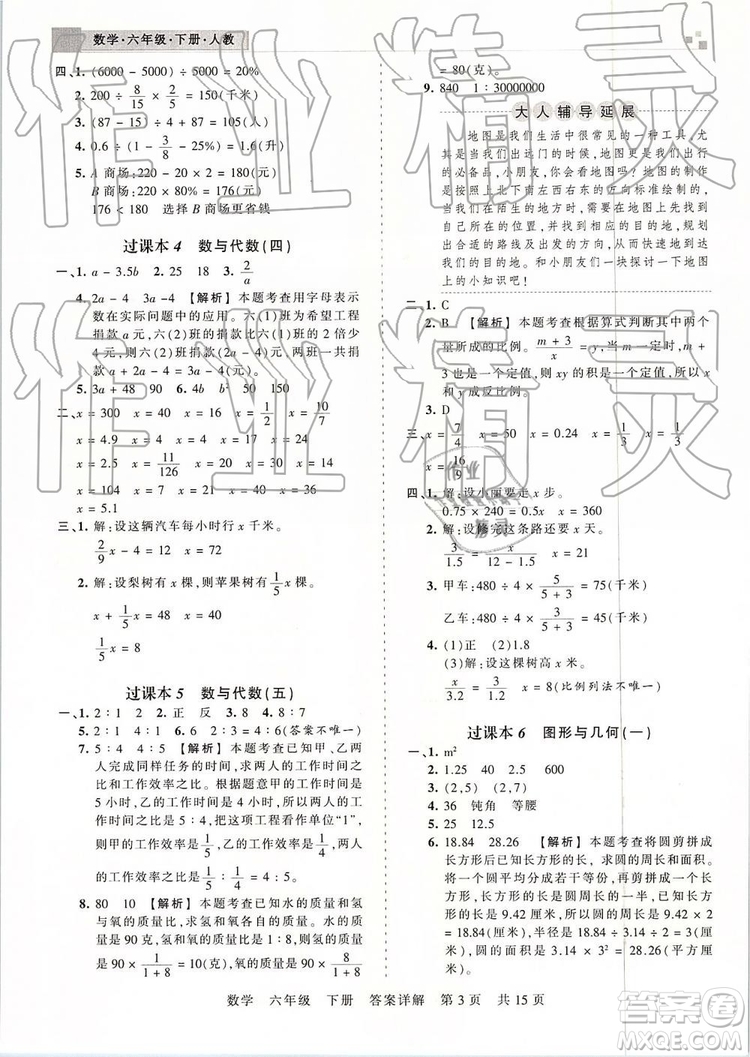 数学·六年级·下册·人教
四、1. (6000 - 5000) ÷ 5000 = 20%
2. 200 ÷ 8/15 × 2/5 = 150(千米)
3. (87 - 15) ÷ (4/5 - 1/2) = 240(千米)
4. 0.6 ÷ (1 - 3/8 - 1/4) = 1.6(升)
5. A 商场:220 - 20 × 2 = 180(元)
B 商场:220 × 80% = 176(元)
176 < 180 选择 B 商场更省钱
过课本 4 数与代数(四)
一、1. a - 3.5b 2. 25 18 3. 2/a
4. 2a - 4 3a - 4 【解析】本题考查用字母表示
数在实际问题中的应用。六(1)班为希望工程
捐款 a 元,六(2)班的捐款比六(1)班的 2 倍少
4 元,则六(2)班捐款(2a - 4)元,两班一共捐
款 a + 2a - 4 = 3a - 4(元)。
5. 3a + 48 90 6. 4b b² 50 7. 150
二、x = 300 x = 40 x = 16 x = 1/2 x = 10/7
x = 4.9 x = 4 x = 2.4 x = 45
x = 2.4 x = 11/126 x = 20 x = 1.6
x = 104 x = 6 x = 87 x = 200
x = 5.1
三、1. 解:设这辆汽车每小时行 x 千米。
2/9 x - 4 = 12 x = 72
2. 解:设梨树有 x 棵,则苹果树有 1/5 x 棵。
x + 1/5 x = 48 x = 40
1/5 x = 8
过课本 5 数与代数(五)
一、1. 2∶1 2 2. 正 反 3. 8 4. 8∶7
5. 2∶1 4∶1 6. 2∶3 = 4∶6(答案不唯一)
7. 5∶4 4∶5 【解析】本题考查已知甲、乙两
人完成同样任务的时间,求两人的工作时间
比和工作效率比。根据题意甲的工作时间是
5 小时,乙的工作时间是 4 小时,所以两人的工
作时间的比是 5∶4,把这项工程看作单位“1”,
则甲的工作效率是 1/5,乙的工作效率是 1/4,两
人的工作效率比是 1/5∶1/4 = 4∶5。
8. 80 10 【解析】本题考查已知水的质量和氢
与氧的质量比,求氢和氧各自的质量。水的质
量是 90 克,氢和氧的质量比是 1∶8,则氢的质
量是 90 × 1/(1 + 8) = 10(克),氧的质量是 90 × 8/(1 + 8)
= 80(克)。
9. 840 1∶30000000
大人辅导延展
地图是我们生活中很常见的一种工具,尤
其是当我们出远门的时候,地图更是我们出行
的必备品,小朋友,你会看地图吗?我们的地
图是按照上北下南左西右东的方向标准绘制的,当
我们到达陌生的地方时,我们首先要找到自己
所在的位置,并找到我们的目的地,然后规划出
合适的路线及出发的方向,就可以顺利地到达
我们的目的地。和小朋友们一块探讨一下地图
上的小知识吧!
二、1. C
2. B 【解析】本题考查根据算式判断其中两个
量所成的比例。(m + 3)/x = y,当 m 一定时,m + 3
也是一个定值,则 xy 的积是一个定值,所以 x
和 y 成反比例。
3. D
三、x = 7/4 x = 50 x = 0.24 x = 1/3 x = 1/3
x = 16/9
四、1. 解:设小丽要走 x 步。
0.75 × 240 = 0.5x x = 360
2. 解:设修完这条路要 x 天。
3/1.5 = x/1.2 x = 2.4
3. 甲车:480 ÷ 4 × 5/(5 + 3) = 75(千米)
乙车:480 ÷ 4 × 3/(5 + 3) = 45(千米)
4. (1)正 (2)1.8
(3)解:设这棵树高 x 米。
x/3.2 = 3/1.2 x = 8(比例列法不唯一)
过课本 6 图形与几何(一)
一、1. m²
2. 1.25 40 2.5 600
3. (2,5) (2,2)
4. 36 钝角 等腰
5. 25 12.5
6. 18.84 28.26 【解析】本题考查将圆剪拼成
长方形后已知长方形的长,求圆的周长和面积。
将一个圆平均分成若干份后剪拼成一个近似的
长方形,长方形的长是圆周长的一半,长方形的
宽是圆的半径,所以圆的周长是 9.42 × 2
= 18.84(厘米),圆的半径是 18.84 ÷ 3.14 ÷ 2
= 3(厘米),面积是 3.14 × 3² = 28.26(平方
厘米)。
数学 六年级 下册 答案详解 第 3 页 共 15 页
作业精灵
作业精灵
答案圈
MXQE.COM